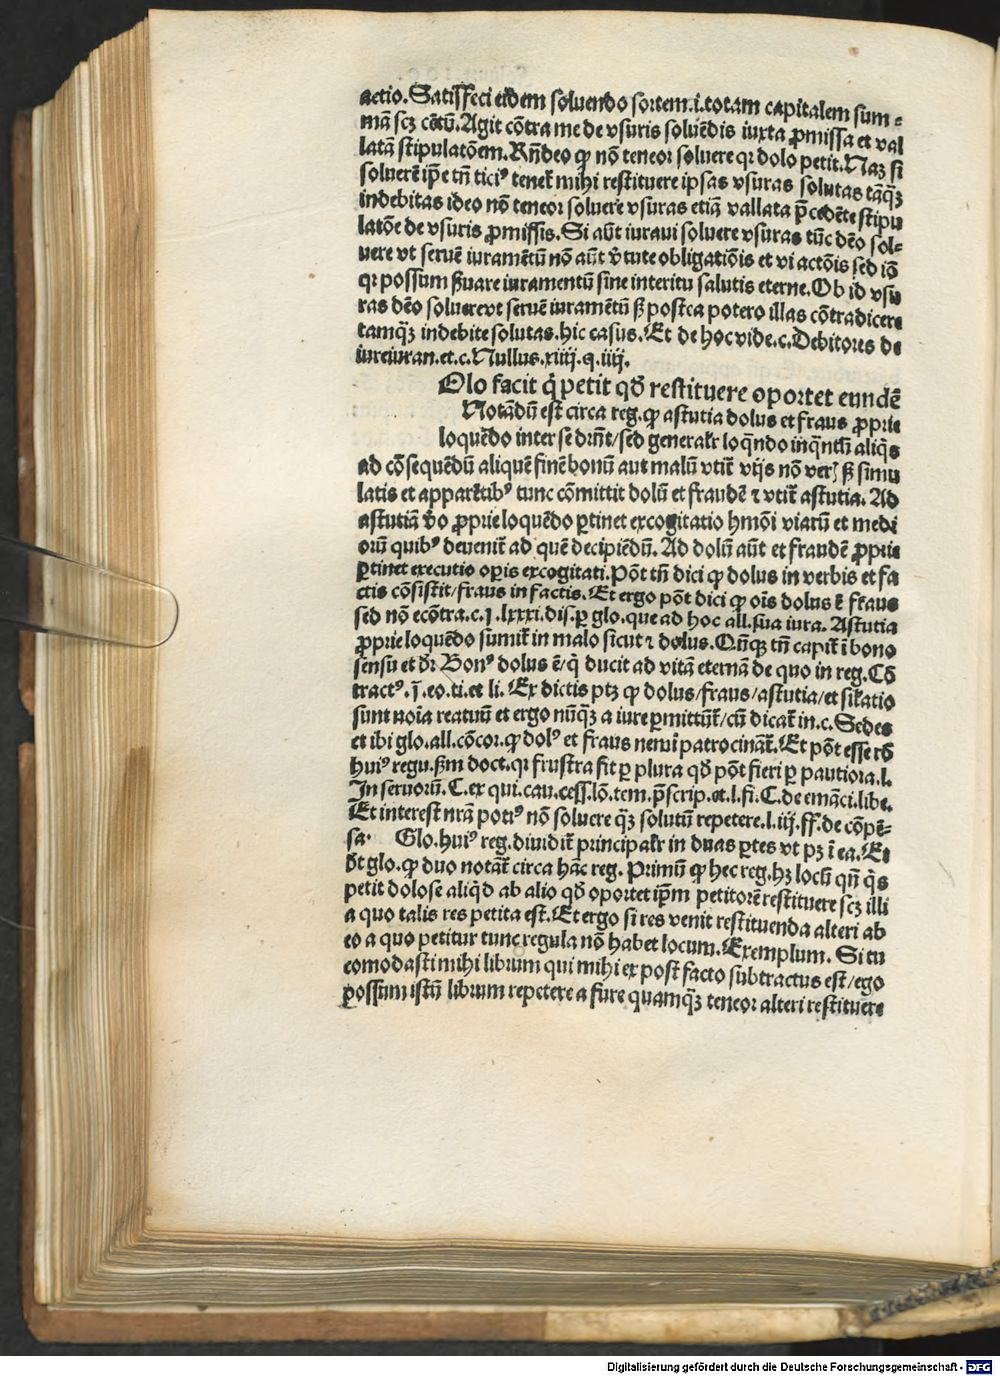 actio. Satisfeci eidem soluendo sortem .i. totam capitalem sum⸗
mã scꝫ cẽtũ. Agit cõtra me de vsuris soluẽdis iuxta ꝓmissa et val
latã stipulatõem. Rñdeo ꝙ nõ teneor soluere qꝛ dolo petit. Naꝫ si
soluerẽ ip̃e tñ ticiꝰ tenet̃ mihi restituere ipsas vsuras solutas tãqꝫ̃
indebitas ideo nõ teneor soluere vsuras etiã vallata p̃cedẽte stipu
latõe de vsuris ꝓmissis. Si aũt iuraui soluere vsuras tũc dẽo sol⸗
uere vt seruẽ iuramẽtũ nõ aũt ṽtute obligatiõis et vi actõis sed iõ
qꝛ possum ẜuare iuramentũ sine interitu salutis eterne. Ob id vsu
ras dẽo soluere vt seruẽ iuramẽtũ ẜꝫ postea potero illas cõtradicere
tamqꝫ̃ indebite solutas. hic casus. Et de hoc vide .c. Debitores de
iureiuran. et .c. Nullus. xiiij. q. iiij.
Olo facit q̇ petit qď restituere oportet eundẽ
Notãdũ est circa reg. ꝙ astutia dolus et fraus ꝓprie
loquẽdo inter se dr̃nt/ sed generalr̃ loq̃ndo inq̃ntũ aliq̃s
ad cõsequẽdũ aliquẽ finẽ bonũ aut malũ vtit̃ vijs nõ verꝭ ẜꝫ simu
latis et apparẽtibꝰ tunc cõmittit dolũ et fraudẽ ⁊ vtit̃ astutia. Ad
astutiã ṽo ꝓprie loquẽdo ꝑtinet excogitatio hmõi viarũ et medi
orũ quibꝰ deuenit̃ ad quẽ decipiẽdũ. Ad dolũ aũt et fraudẽ ꝓprie
ꝑtinet executio oꝑis excogitati. Põt tñ dici ꝙ dolus in verbis et fa
ctis cõsistit/ fraus in factis. Et ergo põt dici ꝙ oĩs dolus ẽ fraus
sed nõ ecõtra .c. j. lxxxi. dis. ꝑ glo. que ad hoc all. sua iura. Astutia
ꝓprie loquẽdo sumit̃ in malo sicut ⁊ dolus. Qñqꝫ tñ capit̃ ĩ bono
sensu et dr̃ Bonꝰ dolus ẽ/ q̇ ducit ad vitã eternã de quo in reg. Cõ
tractꝰ. j. eo. ti. et li. Ex dictis ptꝫ ꝙ dolus/ fraus/ astutia/ et sil̃atio
sunt noĩa reatuũ et ergo nũqꝫ̃ a iure ꝑmittũt̃/ cũ dicat̃ in .c. Sedes
et ibi glo. all. cõcor. ꝙ dolꝰ et fraus nemĩ patrocinãt̃. Et põt esse rõ
huiꝰ regu. ẜm doct. qꝛ frustra fit ꝑ plura qď põt fieri ꝑ pautiora .l.
In seruorũ. C. ex qui. cau. cess. lõ. tem. p̃scrip. et .l. fi. C. de emãci. libe.
Et interest nr̃a potiꝰ nõ soluere qꝫ̃ solutũ repetere .l. iij. ff. de cõpẽ⸗
sa. Glo. huiꝰ reg. diuidit̃ principalr̃ in duas ꝑtes vt pꝫ ĩ ea. Et
dt̃ glo. ꝙ duo notãt̃ circa hãc reg. Primũ ꝙ hec reg. hꝫ locũ qñ q̃s
petit dolose aliq̇d ab alio qď oportet ip̃m petitorẽ restituere scꝫ illi
a quo talis res petita est. Et ergo si res venit restituenda alteri ab
eo a quo petitur tunc regula nõ habet locum. Exemplum. Si tu
comodasti mihi librum qui mihi ex post facto subtractus est/ ego
possum istũ librum repetere a fure quamqꝫ̃ teneor alteri restituere
Digitalisierung gefördert durch die Deutsche Forschungsgemeinschaft - DFG